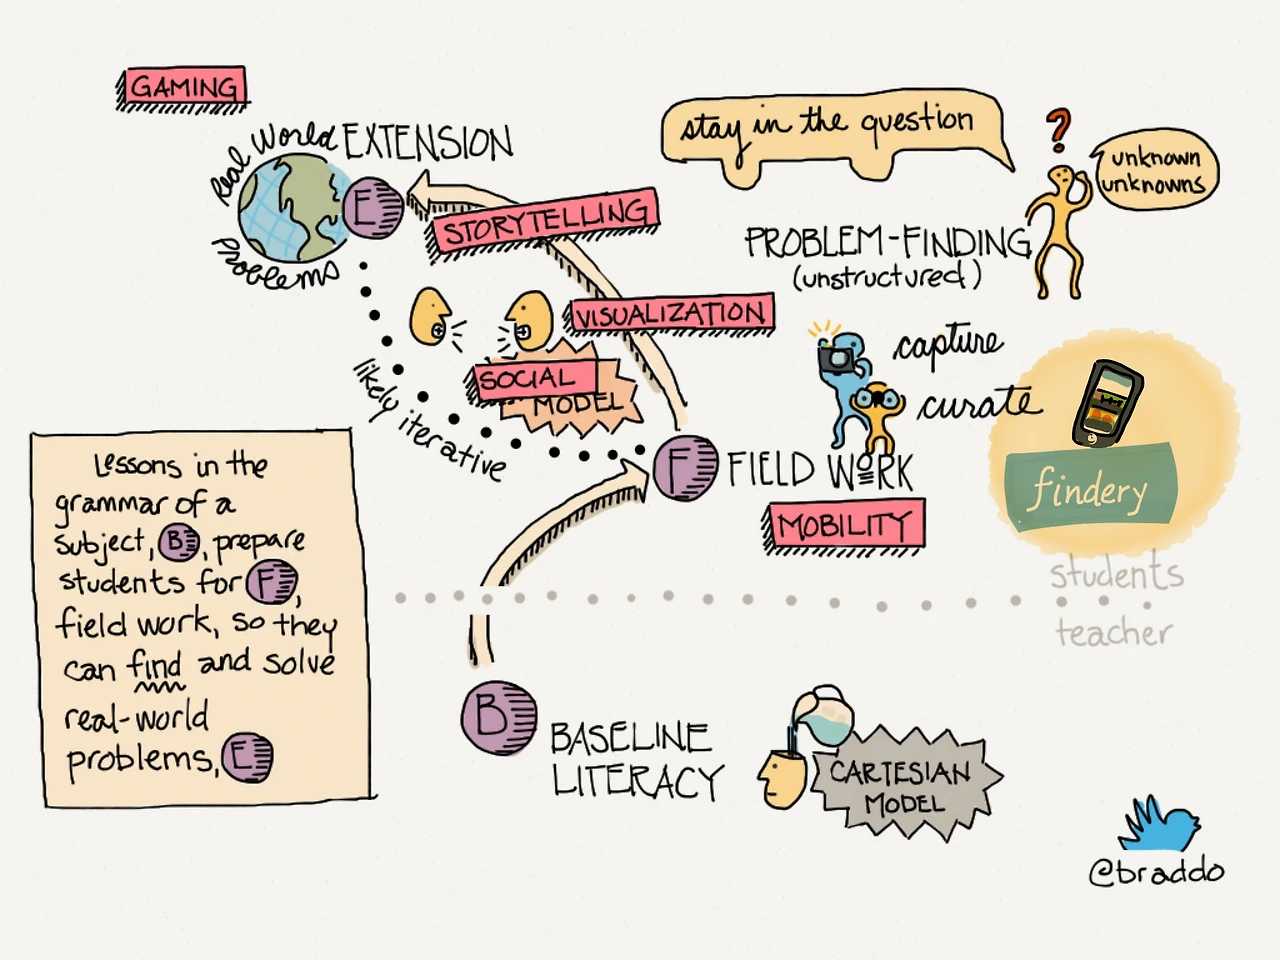 GAMING
Real World
EXTENSION
E
Problems
STORYTELLING
VISUALIZATION
SOCIAL
MODEL
likely iterative
stay in the question
?
unknown
unknowns
PROBLEM-FINDING
(unstructured)
capture
curate
F
FIELD WORK
MOBILITY
findery
students
teacher
Lessons in the
grammar of a
subject, B, prepare
students for F,
field work, so they
can find and solve
real-world
problems, E
B
BASELINE
LITERACY
CARTESIAN
MODEL
@braddo